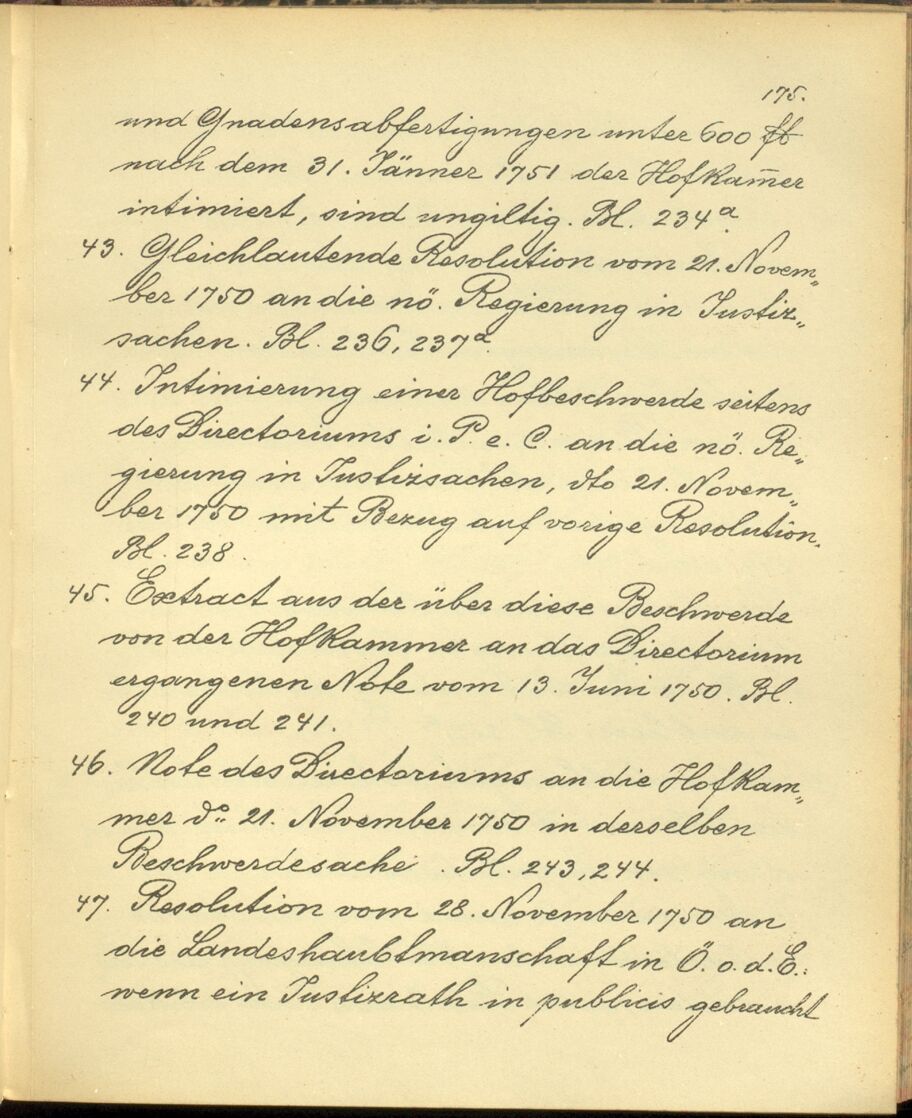 175.
und Gnadensabfertigungen unter 600 fl
nach dem 31. Jänner 1751 der Hofkam̅er
intimiert, sind ungiltig. Bl. 234ª.
43. Gleichlautende Resolution vom 21. Novem„
ber 1750 an die nö. Regierung in Justiz„
sachen. Bl. 236, 237ª.
44. Intimierung einer Hofbeschwerde seitens
des Directoriums i. P. e. C. an die nö. Re„
gierung in Justizsachen, dto 21. Novem„
ber 1750 mit Bezug auf vorige Resolution.
Bl. 238.
45. Extract aus der über diese Beschwerde
von der Hofkammer an das Directorium
ergangenen Note vom 13. Juni 1750. Bl.
240 und 241.
46. Note des Directoriums an die Hofkam„
mer dº: 21. November 1750 in derselben
Beschwerdesache. Bl. 243, 244.
47. Resolution vom 28. November 1750 an
die Landeshaubtmanschaft in Ö. o. d. E.:
wenn ein Justizrath in publicis gebraucht